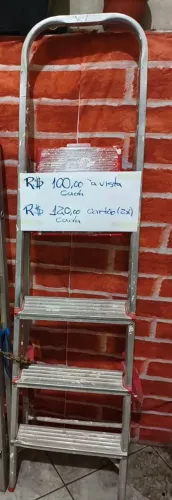 R$ 100,00 à vista
cada
R$ 120,00 cartão (2x)
cada